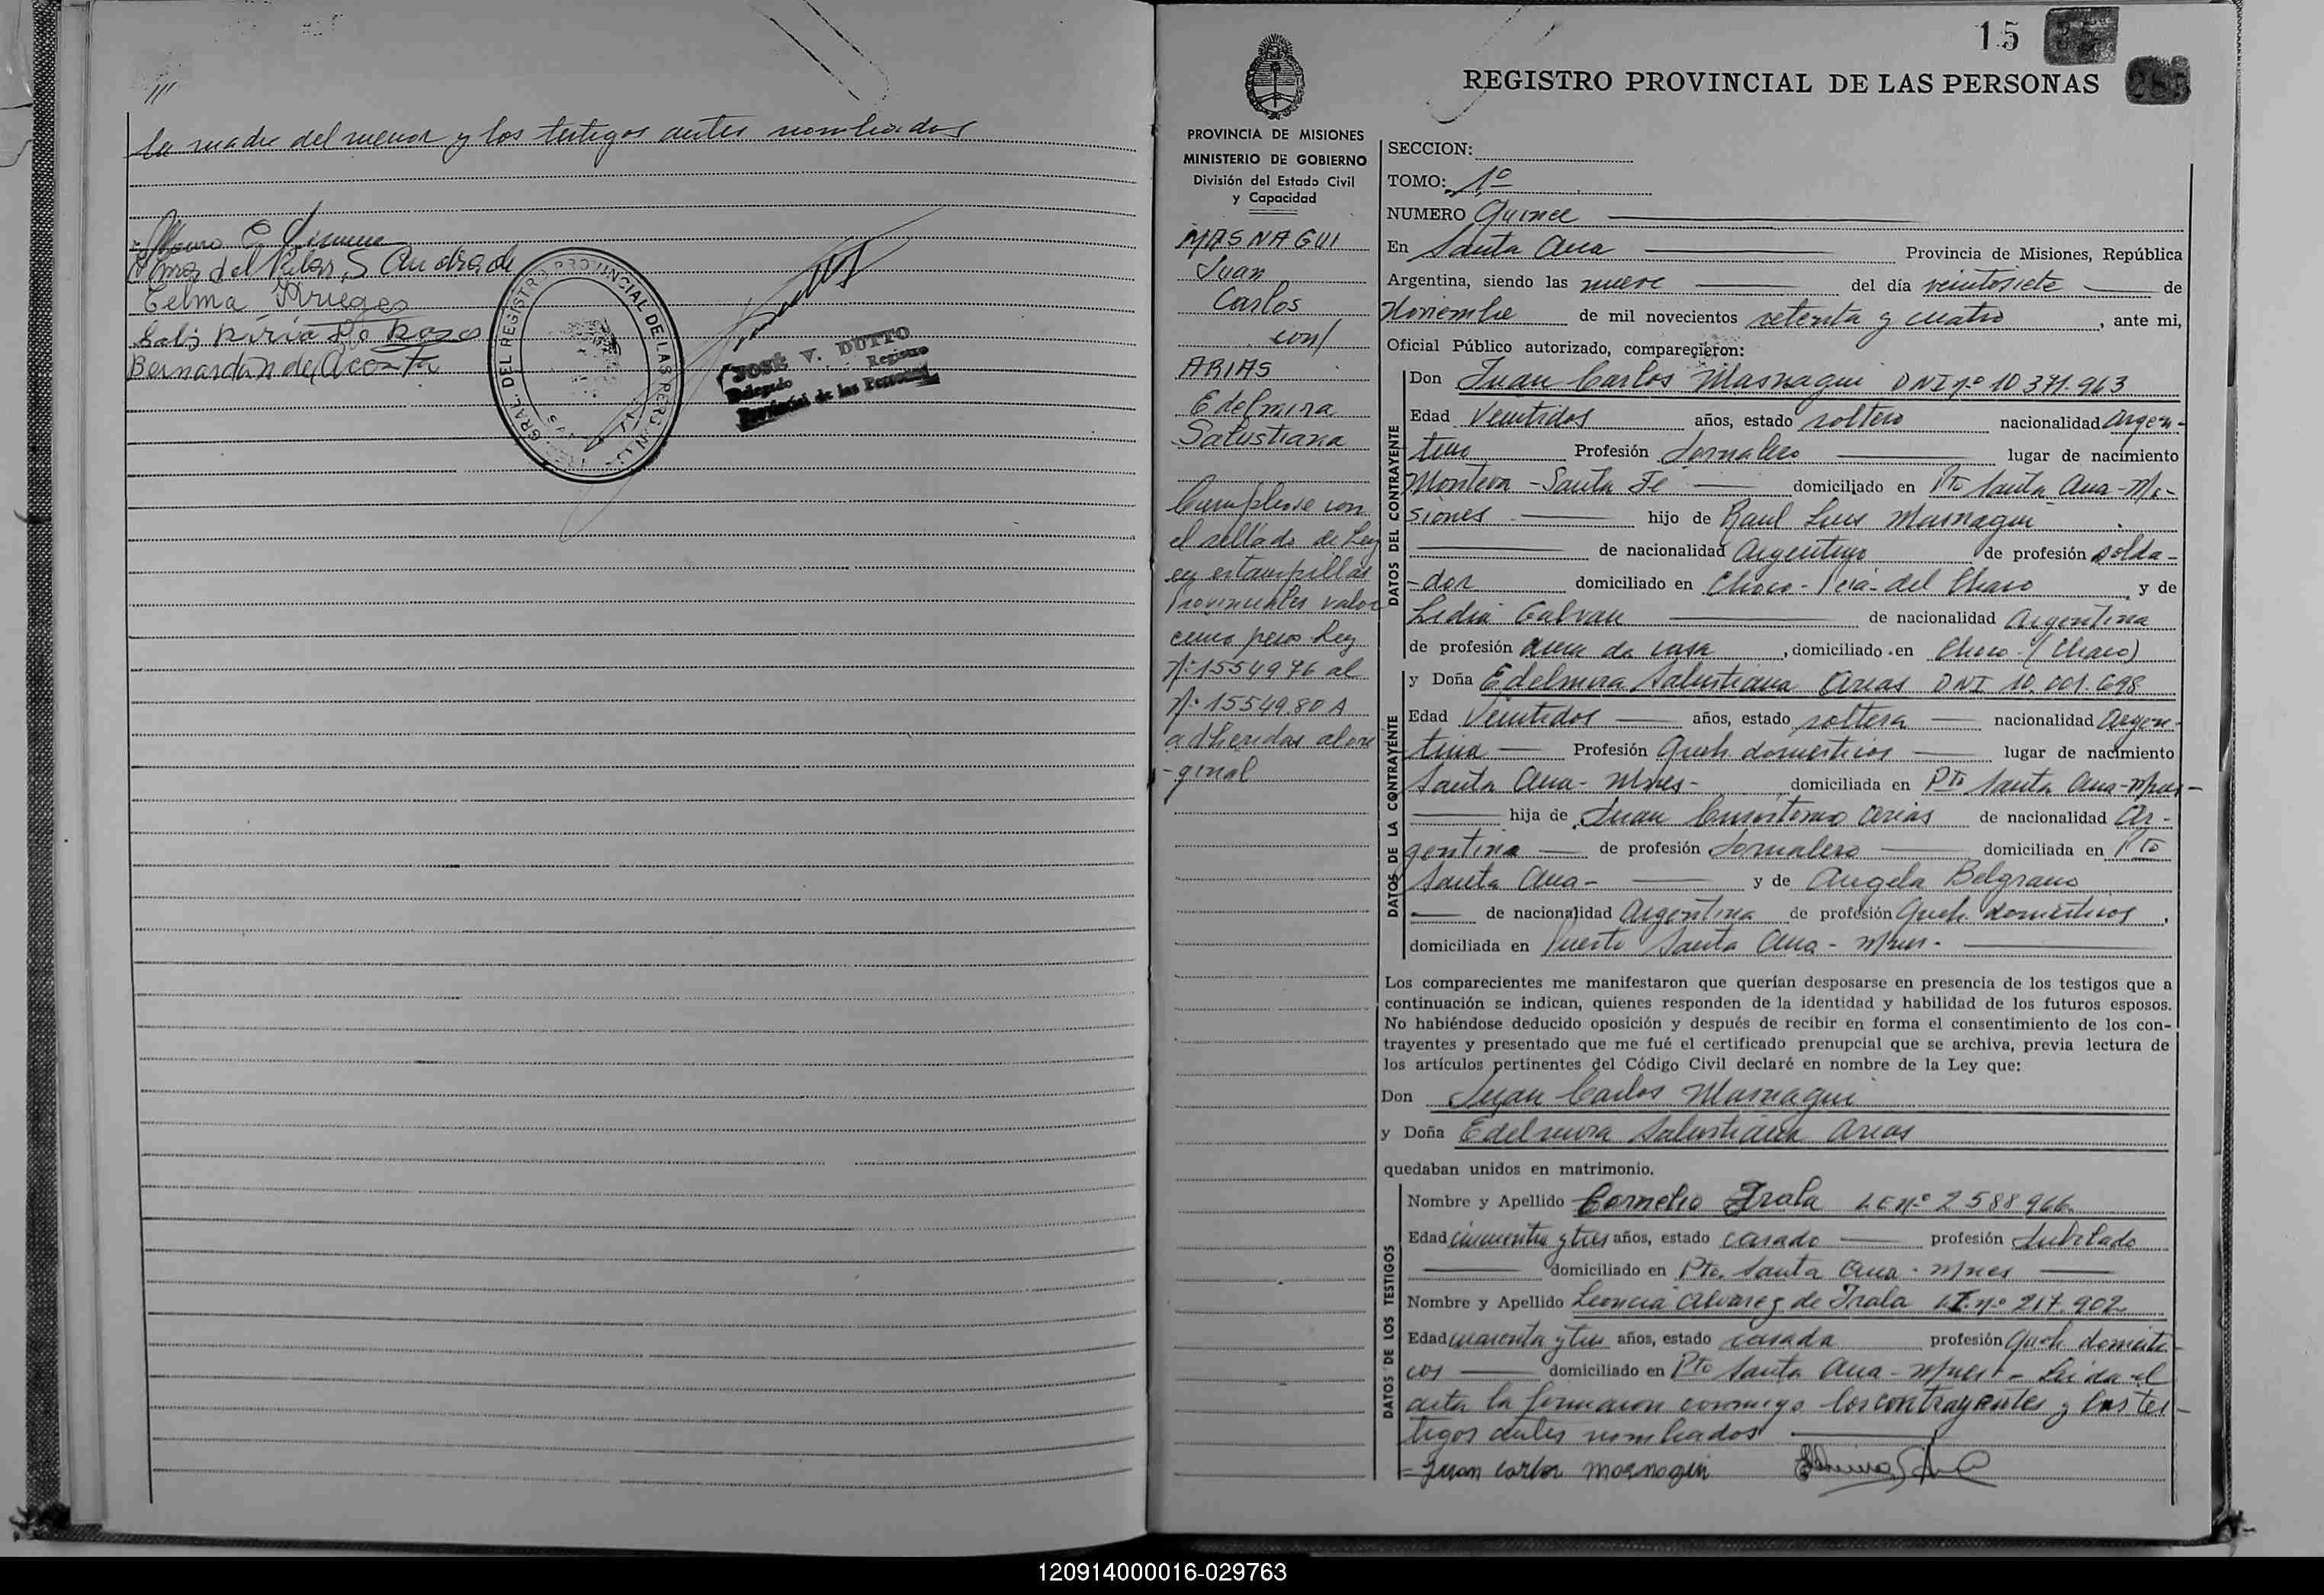 la madre del menor y los testigos antes nombrados
Telma Krieger
Bernardan de Acosta
REG. GRAL. DEL REGISTRO PROVINCIAL DE LAS PERSONAS
JOSÉ V. DUTTO
Delegado Registro
Provincial de las Personas
15
REGISTRO PROVINCIAL DE LAS PERSONAS
PROVINCIA DE MISIONES
MINISTERIO DE GOBIERNO
División del Estado Civil
y Capacidad
MASNAGUI
Juan
Carlos
con/
ARIAS
Edelmira
Salustiana
Cumplese con
el sellado de Ley
en estampillas
Provinciales valor
cinco pesos Ley
Nº 1554976 al
Nº 1554980 A
adheridas al ori
-ginal
SECCION:
TOMO: 1º
NUMERO Quince
En Santa Ana Provincia de Misiones, República
Argentina, siendo las nueve del día veintisiete de
Noviembre de mil novecientos setenta y cuatro, ante mi,
Oficial Público autorizado, comparecieron:
DATOS DEL CONTRAYENTE
Don Juan Carlos Masnagui DNI nº 10 371.963
Edad Veintidos años, estado soltero nacionalidad Argen-
tino Profesión Jornalero lugar de nacimiento
Montera - Santa Fé domiciliado en Pto Santa Ana - Mi-
siones hijo de Raul Luis Masnagui
de nacionalidad Argentino de profesión solda-
-dor domiciliado en Choco - Pcia. del Chaco y de
Lidia Galvan de nacionalidad Argentina
de profesión ama de casa, domiciliado en Choco - (Chaco)
DATOS DE LA CONTRAYENTE
y Doña Edelmira Salustiana Arias DNI 10.001.698
Edad Veintidos años, estado soltera nacionalidad Argen-
tina Profesión Queh. domesticos lugar de nacimiento
Santa Ana - Mnes - domiciliada en Pto Santa Ana - Mnes -
hija de Juan Crisostomo Arias de nacionalidad Ar-
gentina de profesión Jornalero domiciliada en Pto
Santa Ana - y de Angela Belgrano
de nacionalidad Argentina de profesión Queh. domésticos,
domiciliada en Puerto Santa Ana - Mnes -
Los comparecientes me manifestaron que querían desposarse en presencia de los testigos que a
continuación se indican, quienes responden de la identidad y habilidad de los futuros esposos.
No habiéndose deducido oposición y después de recibir en forma el consentimiento de los con-
trayentes y presentado que me fué el certificado prenupcial que se archiva, previa lectura de
los artículos pertinentes del Código Civil declaré en nombre de la Ley que:
Don Juan Carlos Masnagui
y Doña Edelmira Salustiana Arias
quedaban unidos en matrimonio.
DATOS DE LOS TESTIGOS
Nombre y Apellido Cornelio Irala L E nº 2588966
Edad cincuenta y tres años, estado casado profesión Jubilado
domiciliado en Pto. Santa Ana - Mnes
Nombre y Apellido Leoncia Alvarez de Irala nº 217.902
Edad cuarenta y tres años, estado casada profesión Queh. domesti-
cos domiciliado en Pto Santa Ana - Mnes - Leida el
acta la firmaron conmigo los contrayentes y los tes-
tigos antes nombrados
Juan Carlos Masnagui
120914000016-029763